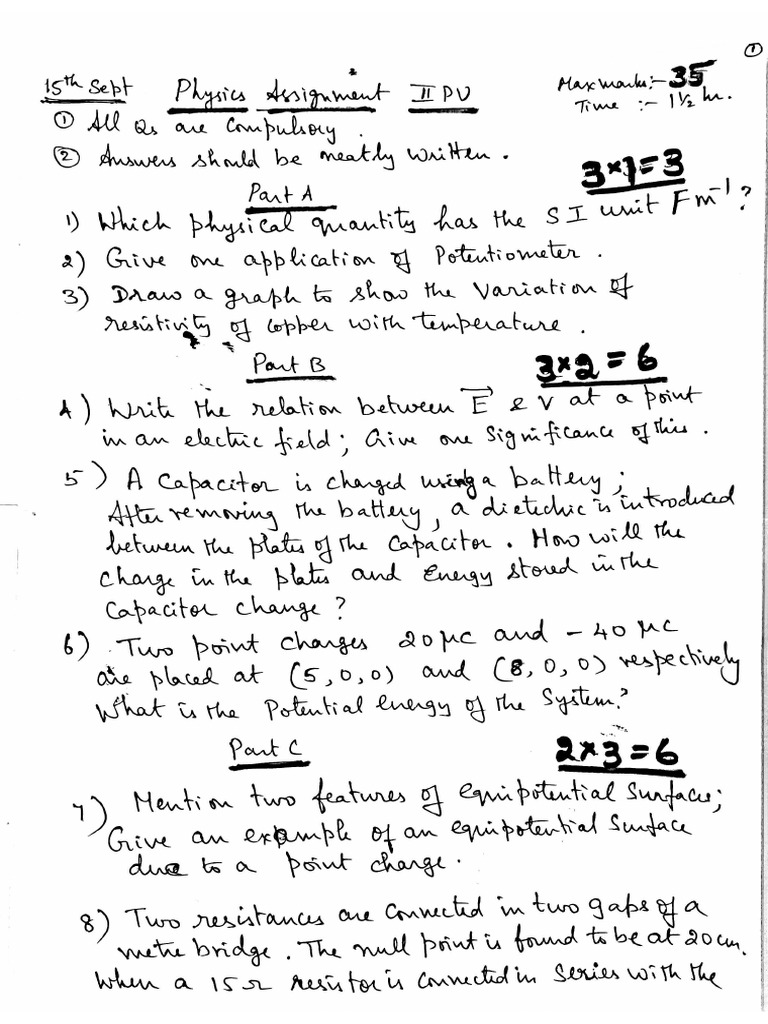 ①
15th Sept Physics Assignment II PU Max marks:- 35
Time :- 1½ hr.
① All Qs are Compulsory.
② Answers should be neatly written.
3×1=3
Part A
1) Which physical quantity has the SI unit Fm⁻¹?
2) Give one application of Potentiometer.
3) Draw a graph to show the variation of
resistivity of Copper with temperature.
Part B 3×2=6
4) Write the relation between E⃗ & V at a point
in an electric field; Give one Significance of this.
5) A Capacitor is charged using a battery;
After removing the battery, a dielectric is introduced
between the plates of the Capacitor. How will the
charge in the plates and Energy stored in the
Capacitor change?
6) Two point charges 20 μc and - 40 μc
are placed at (5,0,0) and (8,0,0) respectively
What is the Potential energy of the System?
Part C 2×3=6
7) Mention two features of equipotential surface;
Give an example of an equipotential Surface
due to a point charge.
8) Two resistances are Connected in two gaps of a
metre bridge. The null point is found to be at 20cm.
When a 15Ω resistor is connected in Series with the